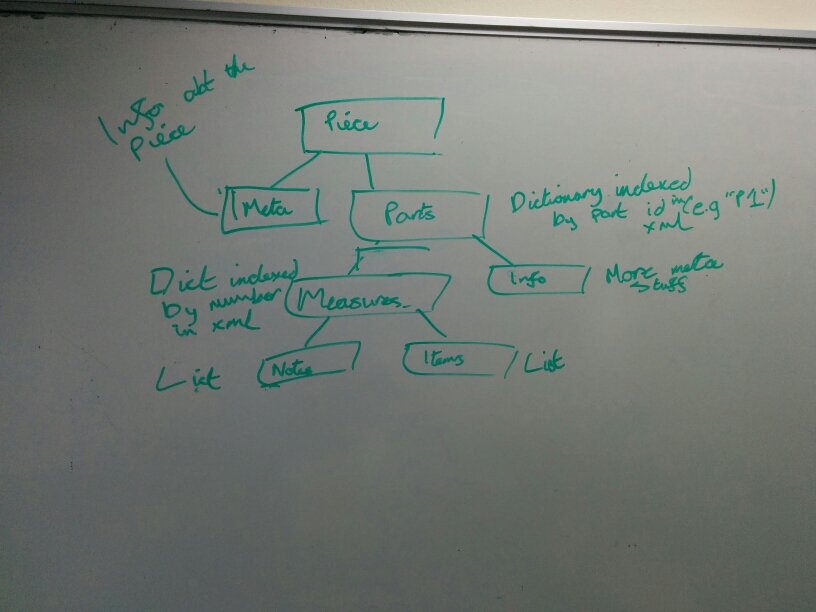 Info abt the
Piece
Piece
Meta
Parts
Dictionary indexed
by part id in (e.g "P1")
xml
Dict indexed
by number
in xml
Measures
Info
More meta
stuff
List
Notes
Items
List